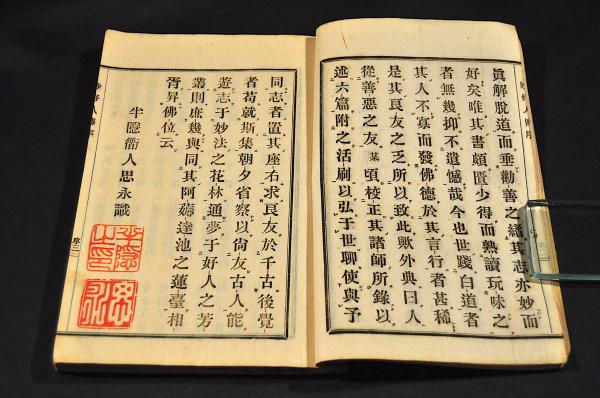 眞解脱道而垂勸善之緖其志亦妙而
好矣唯其書頗匱少得而熟讀玩味之
者無幾抑不遺憾哉今也世踐白道者
其人不寡而發佛德於其言行者甚稀
是其良友之乏所以致此歟外典曰人
從善惡之友某頃校正其諸師所錄以
述六篇附之活刷以弘于世聊使與予
同志者置其座右求良友於千古後覺
者苟就斯集朝夕省察以尙友古人能
遊志于妙法之花林通夢于好人之芳
叢則庶幾與同其阿耨達池之蓮臺相
胥昇佛位云
半隱衞人思永識
序三